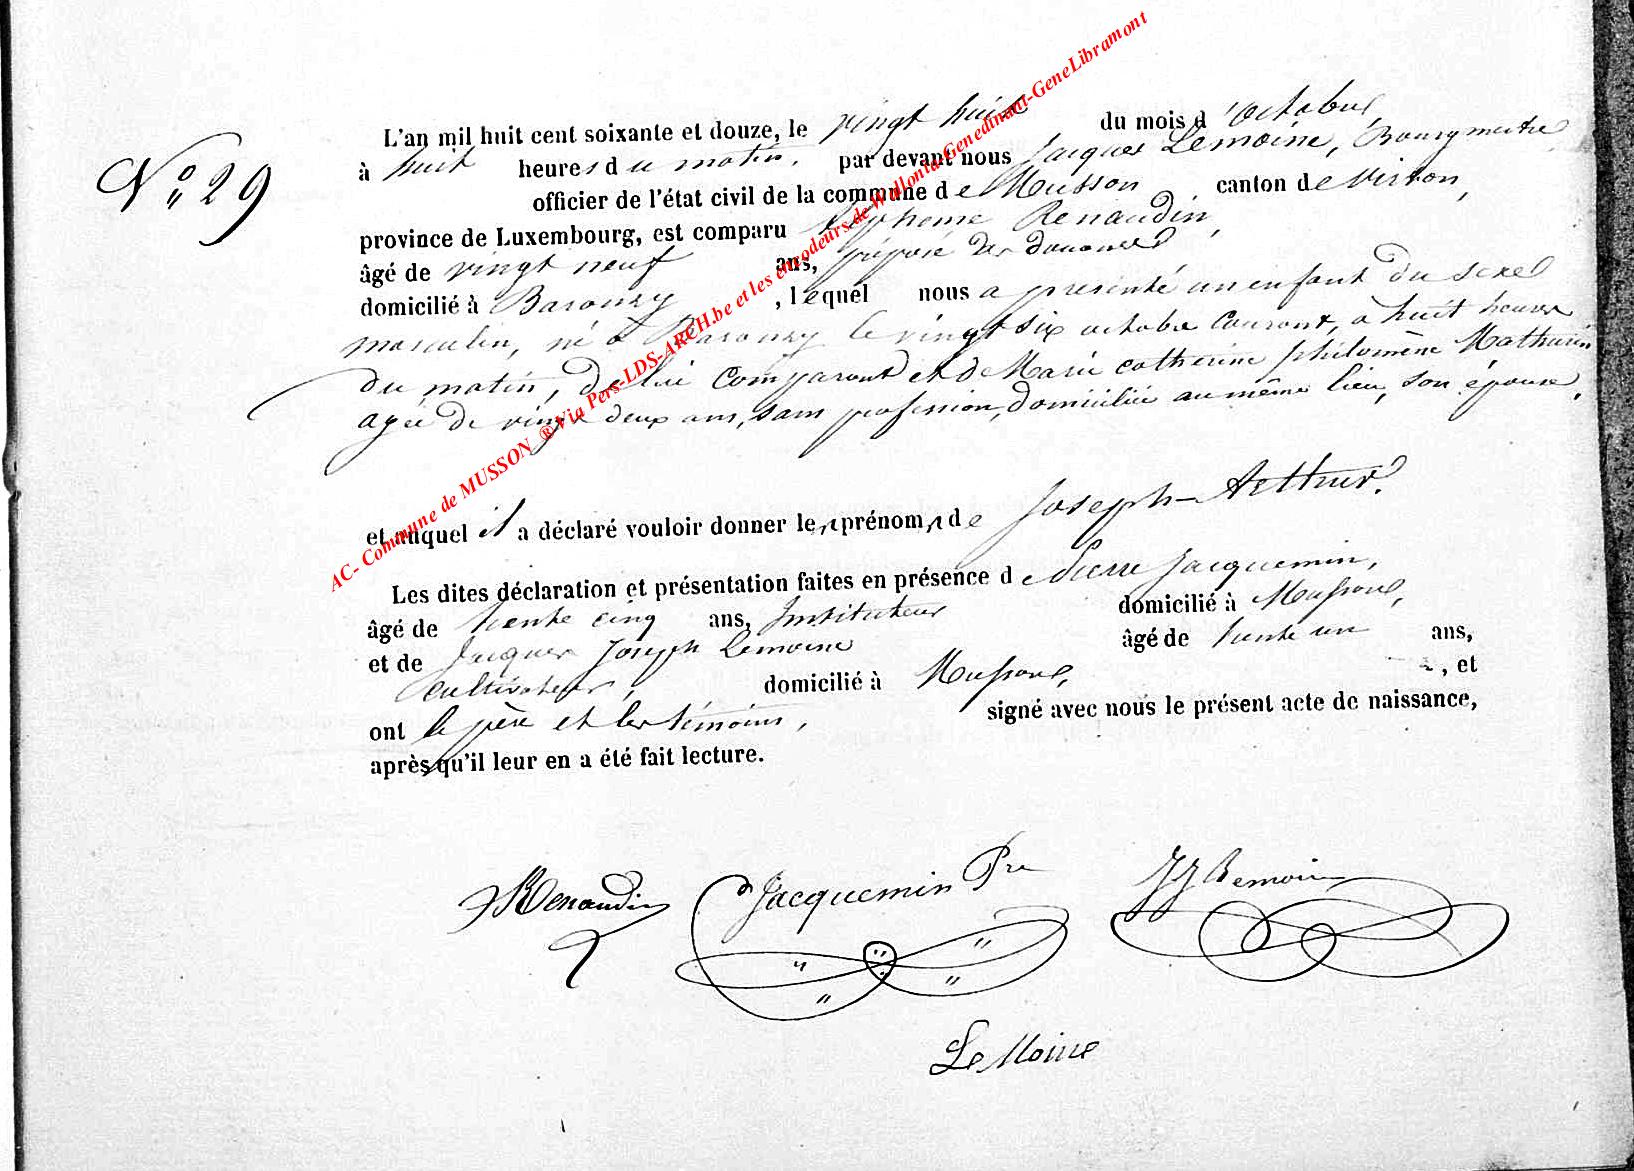 N° 29
L'an mil huit cent soixante et douze, le vingt huit du mois d'octobre,
à huit heures du matin, par devant nous Jacques Lemoine, Bourgmestre
officier de l'état civil de la commune de Musson canton de Virton,
province de Luxembourg, est comparu Renaudin,
âgé de vingt neuf ans, préposé des douanes
domicilié à Baranzy, lequel nous a présenté un enfant du sexe
masculin, né à Baranzy le vingt six octobre courant, à huit heures
du matin, de lui comparant et de Marie catherine philomène Mathurin
agée de vingt deux ans, sans profession, domiciliée au même lieu, son épouse,
et auquel il a déclaré vouloir donner les prénoms de Joseph-Arthur.
Les dites déclaration et présentation faites en présence de Pierre Jacquemin,
âgé de trente cinq ans, Instituteur domicilié à Musson,
et de Jacques Joseph Lemoine âgé de trente un ans,
cultivateur, domicilié à Musson, , et
ont le père et les témoins, signé avec nous le présent acte de naissance,
après qu'il leur en a été fait lecture.
Renaudin Jacquemin Pre JJ Lemoine
LeMoine
AC- Commune de MUSSON ® Via Pers-LDS-ARCH.be et les encodeurs de Wallonia-Genedinant-GeneLibramont